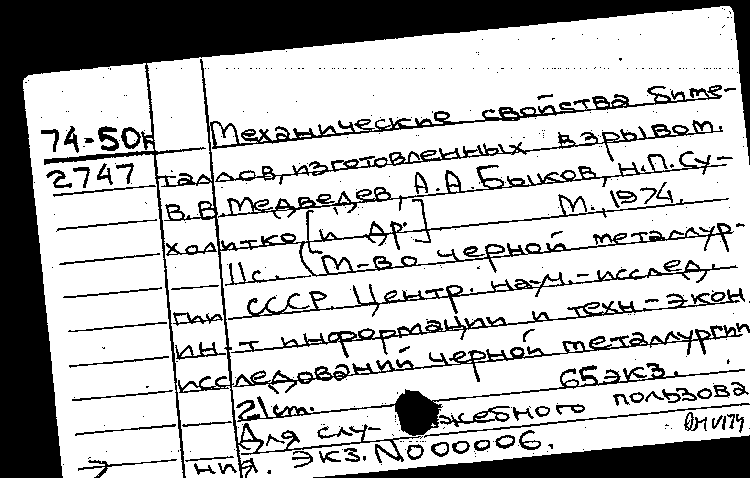 74-50к
2747
Механические свойства биме-
таллов, изготовленных взрывом.
В.В.Медведев, А.А.Быков, Н.П.Су-
холитко [и др.] М., 1974.
11с. (М-во черной металлур-
гии СССР. Центр. науч.-исслед.
ин-т информации и техн.-экон.
исследований черной металлургии
21cm. 65экз.
Для слу- жебного пользова
ния. экз.N000006.